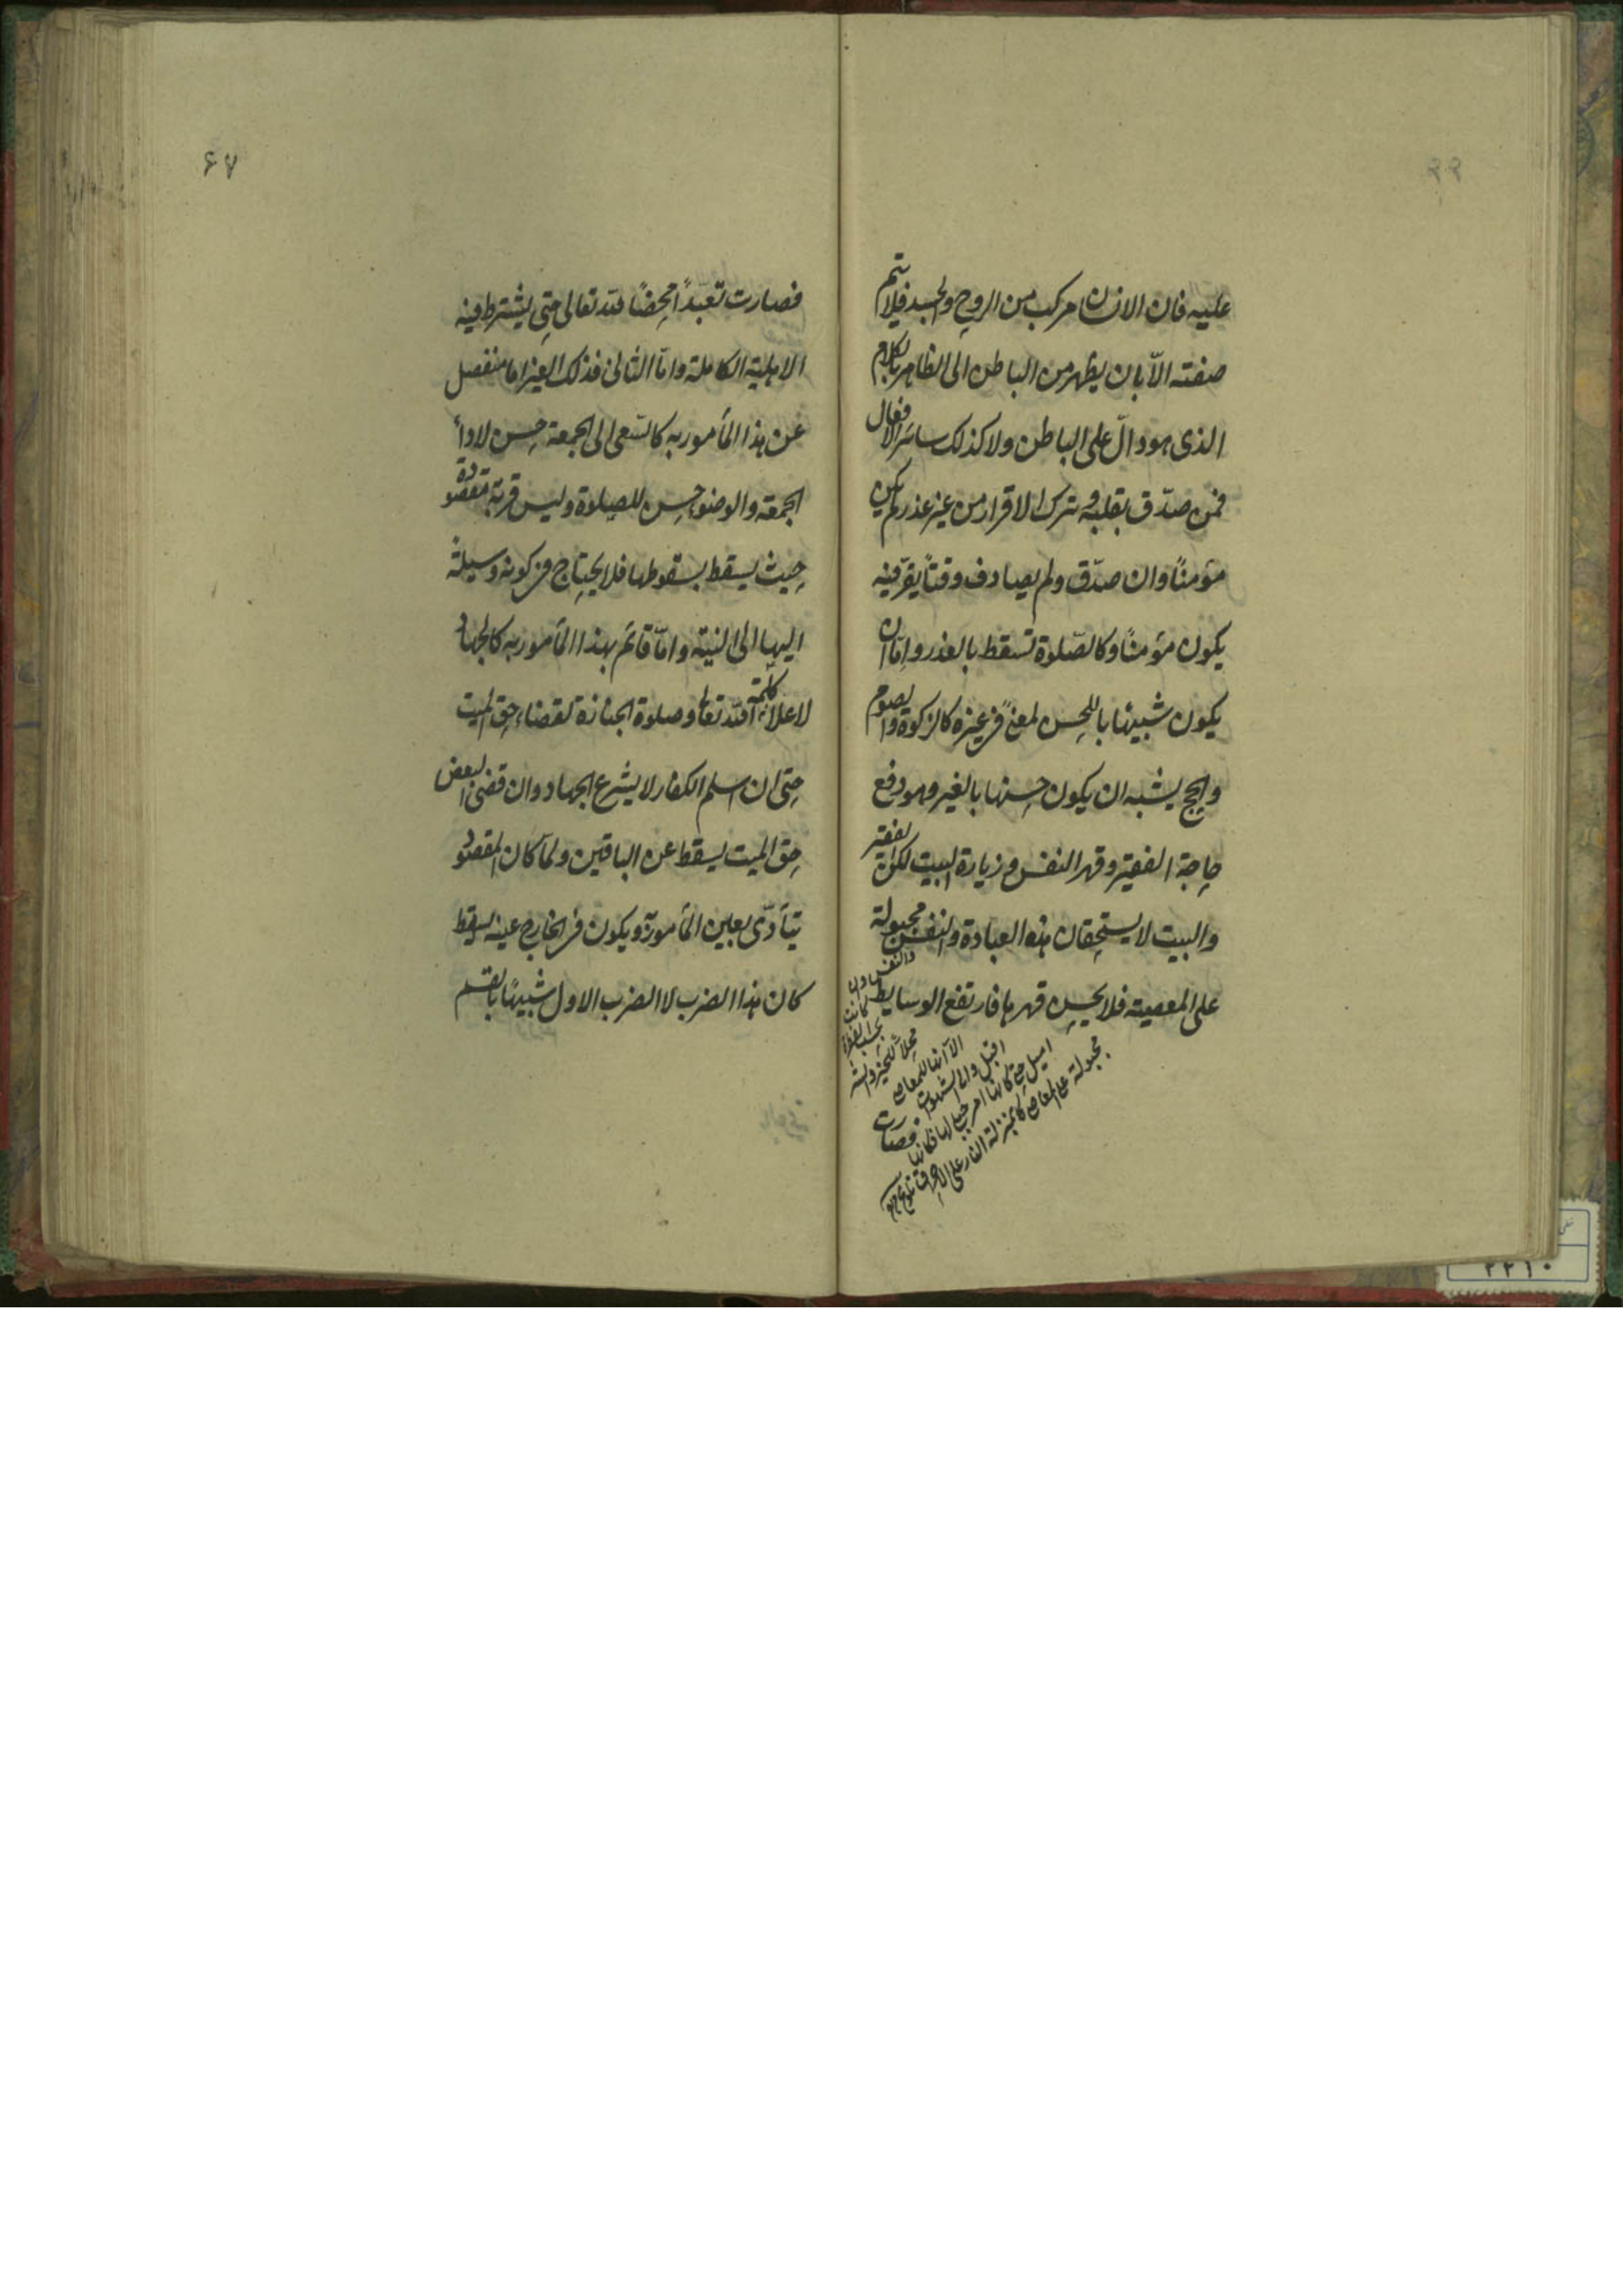 عليه فان الانسان مركب من الروح والجسد فلا تتم
صفته الّا بان يظهر من الباطن الى الظاهر بالكلام
الذى هو دالّ على الباطن ولا كذلك سائر الافعال
فمن صدّق بقلبه وترك الاقرار من غير عذر لم يكن
مؤمنًا وان صدّق ولم يصادف وقتًا يقرّ فيه
يكون مؤمنًا وكالصّلوة تسقط بالعذر وامّا ان
يكون شبيهًا باللحسن لمعنًى فى غيره كالزكوة والصوم
والحج يشبه ان يكون حسنها بالغير وهو دفع
حاجة الفقير وقهر النفس وزيارة البيت لكن الفقير
والبيت لا يستحقان هذه العبادة والنفس مجبولة
على المعصية فلا يحسن قهرها فارتفع الوسايط
والنفس وان
كانت
بحسب الفطرة
محلا للخير والشر
الا انها للمعاصى
اقبل والى الشهوات
اميل حتى كانها امر جبلى لها فكانها
فصارت
مجبولة على المعاصى كانها بمنزلة النار على الاحراق
۶۷
فصارت تعبّدًا محضًا لله تعالى حتى يشترط فيه
الاهلية الكاملة وامّا الثانى فذلك الغير اما منفصل
عن هذا المأمور به كالسّعى الى الجمعة حسن لاداء
الجمعة والوضوء حسن للصلوة وليس قربة مقصودة
حيث يسقط بسقوطها فلا يحتاج فى كونه وسيلة
اليها الى النية وامّا قائم بهذا المأمور به كالجهاد
لاعلاء كلمة الله تعالى وصلوة الجنازة لقضاء حق الميت
حتى ان اسلم الكفار لا يشرع الجهاد وان قضى البعض
حق الميت يسقط عن الباقين ولمّا كان المقصود
يتأدّى بعين المأمور به ويكون فى الخارج عينه يسقط
كان هذا الضرب لا الضرب الاول شبيهًا بالقسم
۲۲۱۰